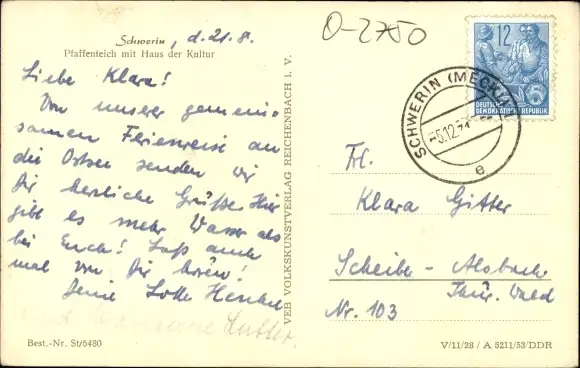 Schwerin, d. 21. 8.
Pfaffenteich mit Haus der Kultur
Liebe Klara!
Von unserer gemein-
samen Ferienreise an
die Ostsee senden wir
Dir herzliche Grüße. Hier
gibt es mehr Wasser als
bei Euch! Laß auch
mal von Dir hören!
Deine Lotte Henkel
und Luther
Best.-Nr. St/6480
VEB VOLKSKUNSTVERLAG REICHENBACH I. V.
O-2750
12
DEUTSCHE
DEMOKRATISCHE REPUBLIK
SCHWERIN (MECKL)
-5.12.
e
Frl.
Klara Gitter
Scheibe-Alsbach
Thür. Wald
Nr. 103
V/11/28 / A 5211/53/DDR